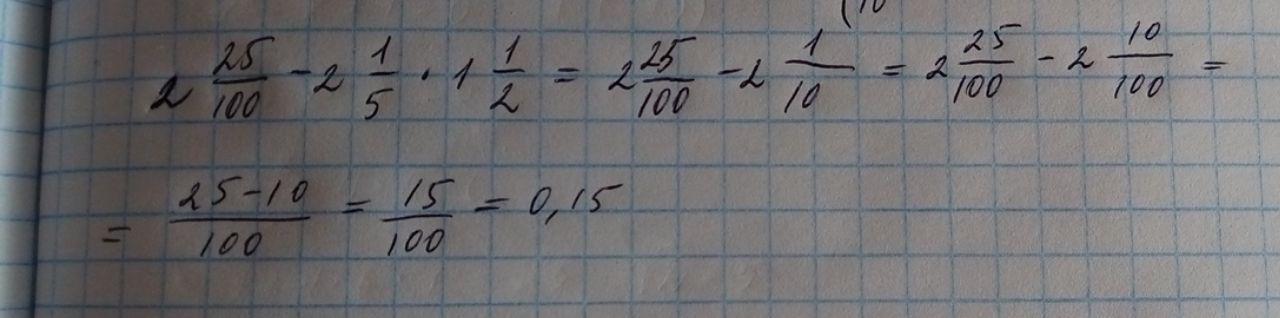 2 25/100 - 2 1/5 · 1 1/2 = 2 25/100 - 2 1/10 = 2 25/100 - 2 10/100 =
= 25-10/100 = 15/100 = 0,15